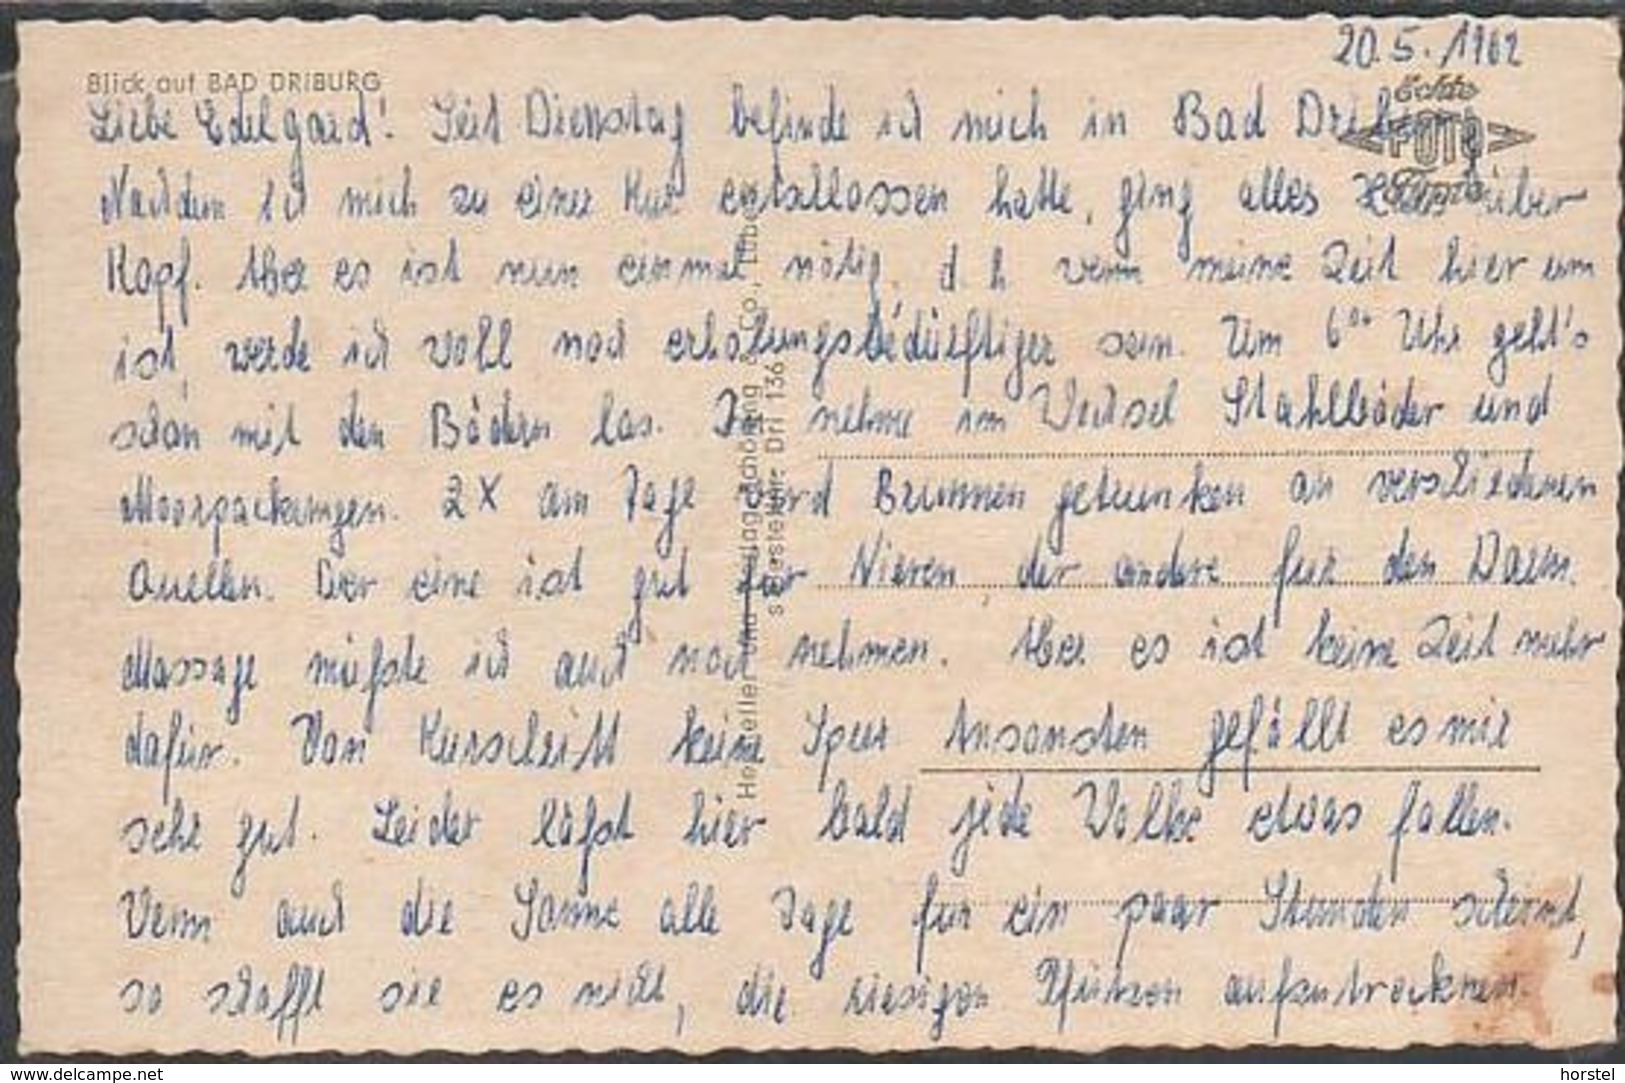 20.5.1962
Blick auf BAD DRIBURG
Echte
FOTO
Liebe Edelgard! Seit Dienstag befinde ich mich in Bad Driburg
Nachdem ich mich zu einer Kur entschlossen hatte, ging alles Hals über
Kopf. Aber es ist nun einmal nötig, d. h. wenn meine Zeit hier um
ist, werde ich wohl noch erholungsbedürftiger sein. Um 6⁰⁰ Uhr geht's
schon mit den Bädern los. Ich nehme im Wechsel Stahlbäder und
Moorpackungen. 2 X am Tage wird Brunnen getrunken an verschiedenen
Quellen. Der eine ist gut für Nieren der andere für den Darm.
Massage müßte ich auch noch nehmen. Aber es ist keine Zeit mehr
dafür. Von Kurschritt keine Spur Ansonsten gefällt es mir
sehr gut. Leider läßt hier bald jede Wolke etwas fallen.
Wenn auch die Sonne alle Tage für ein paar Stunden scheint,
so schafft sie es nicht, die riesigen Pfützen aufzutrocknen.
www.delcampe.net
horstel